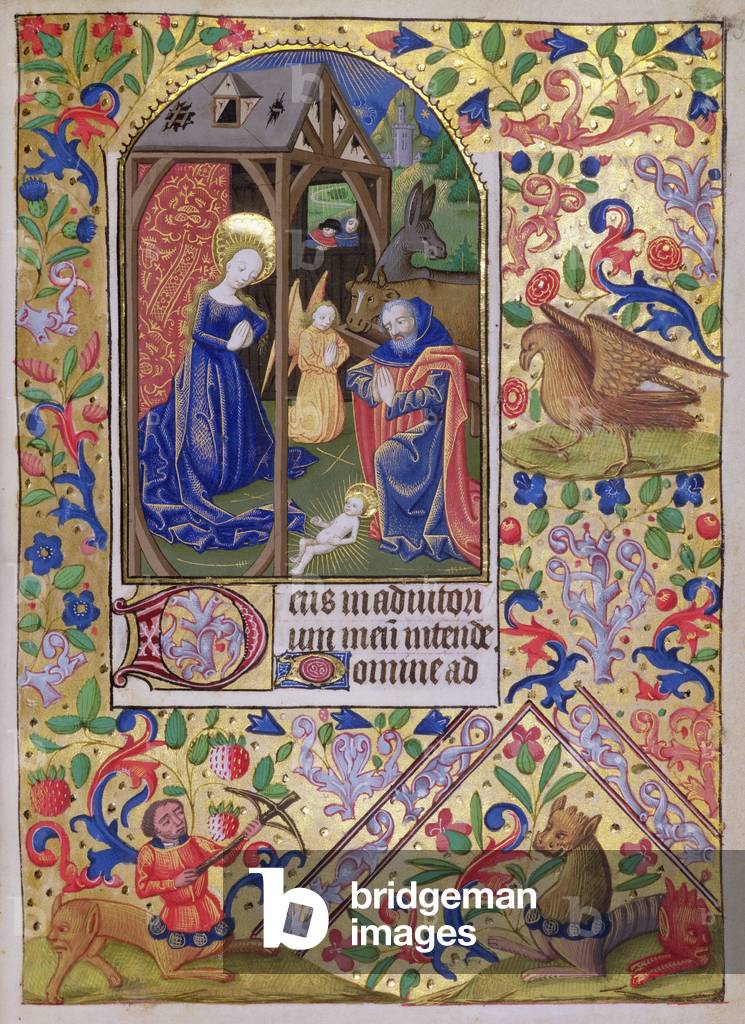 Deus in adiutori
um meū intende
Domine ad
b bridgeman
images